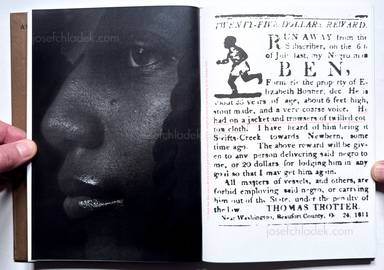 TWENTY-FIVE DOLLARS REWARD.
RUN AWAY from the
Subscriber, on the 6th
of last, my Negro man
BEN,
Formerly the property of E-
lizabeth Bonner, dec. He is
about 25 years of age, about 6 feet high,
stout made, and a very coarse voice. He
had on a jacket and trowsers of twilled cot
ton cloth. I have heard of him being it
Swifts-Creek towards Newbern, some
time ago. The above reward will be giv-
en to any person delivering said negro to
me, or 20 dollars for lodging him in any
goal so that I may get him again.
All masters of vessels, and others, are
forbid employing said negro, or carrying
him out of the State, under the penalty of
the law. THOMAS TROTTER.
Near Washington, Beaufort County, 26, 1811
josefchladek.com
josefchladek.com
josefchladek.com
josefchladek.com